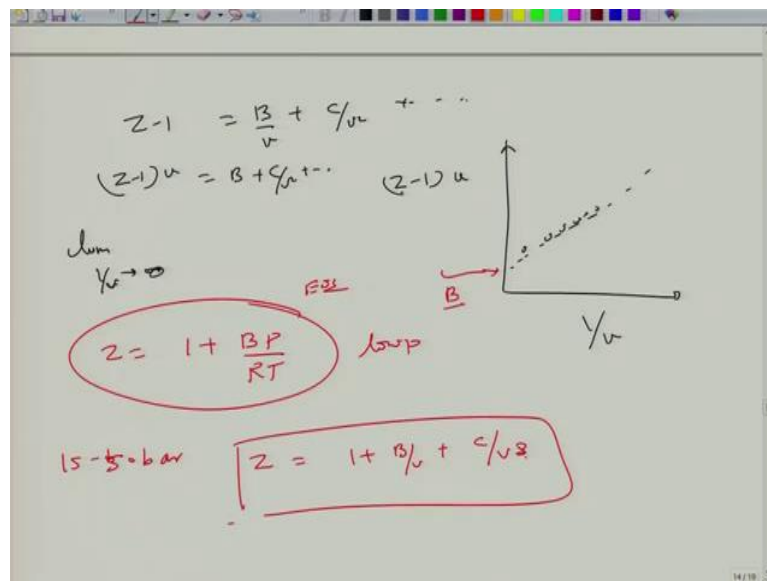 Z-1 = B/v + C/v2 + ...
(Z-1) v = B + C/v + ..
(Z-1) v
lim
1/v → 0
EOS
B
1/v
Z = 1 + BP/RT
low p
15-50 bar
Z = 1 + B/v + C/v2
14/19